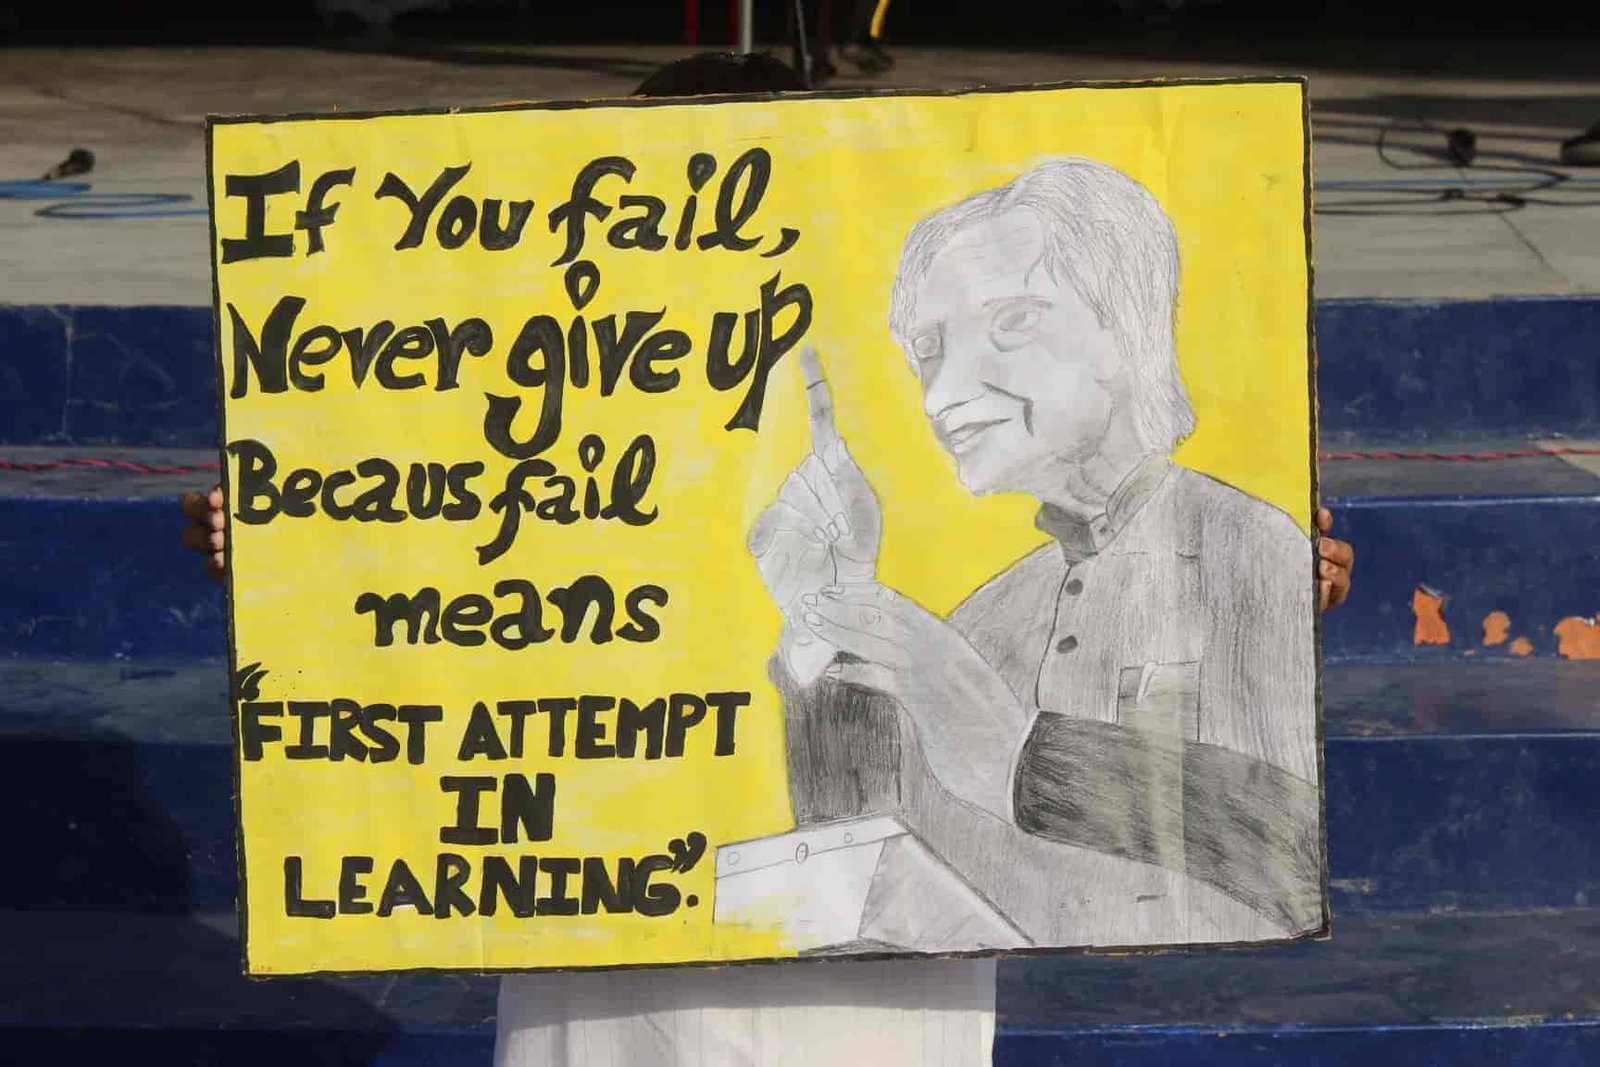 If You fail,
Never give up
Becaus fail
means
“FIRST ATTEMPT
IN
LEARNING”.